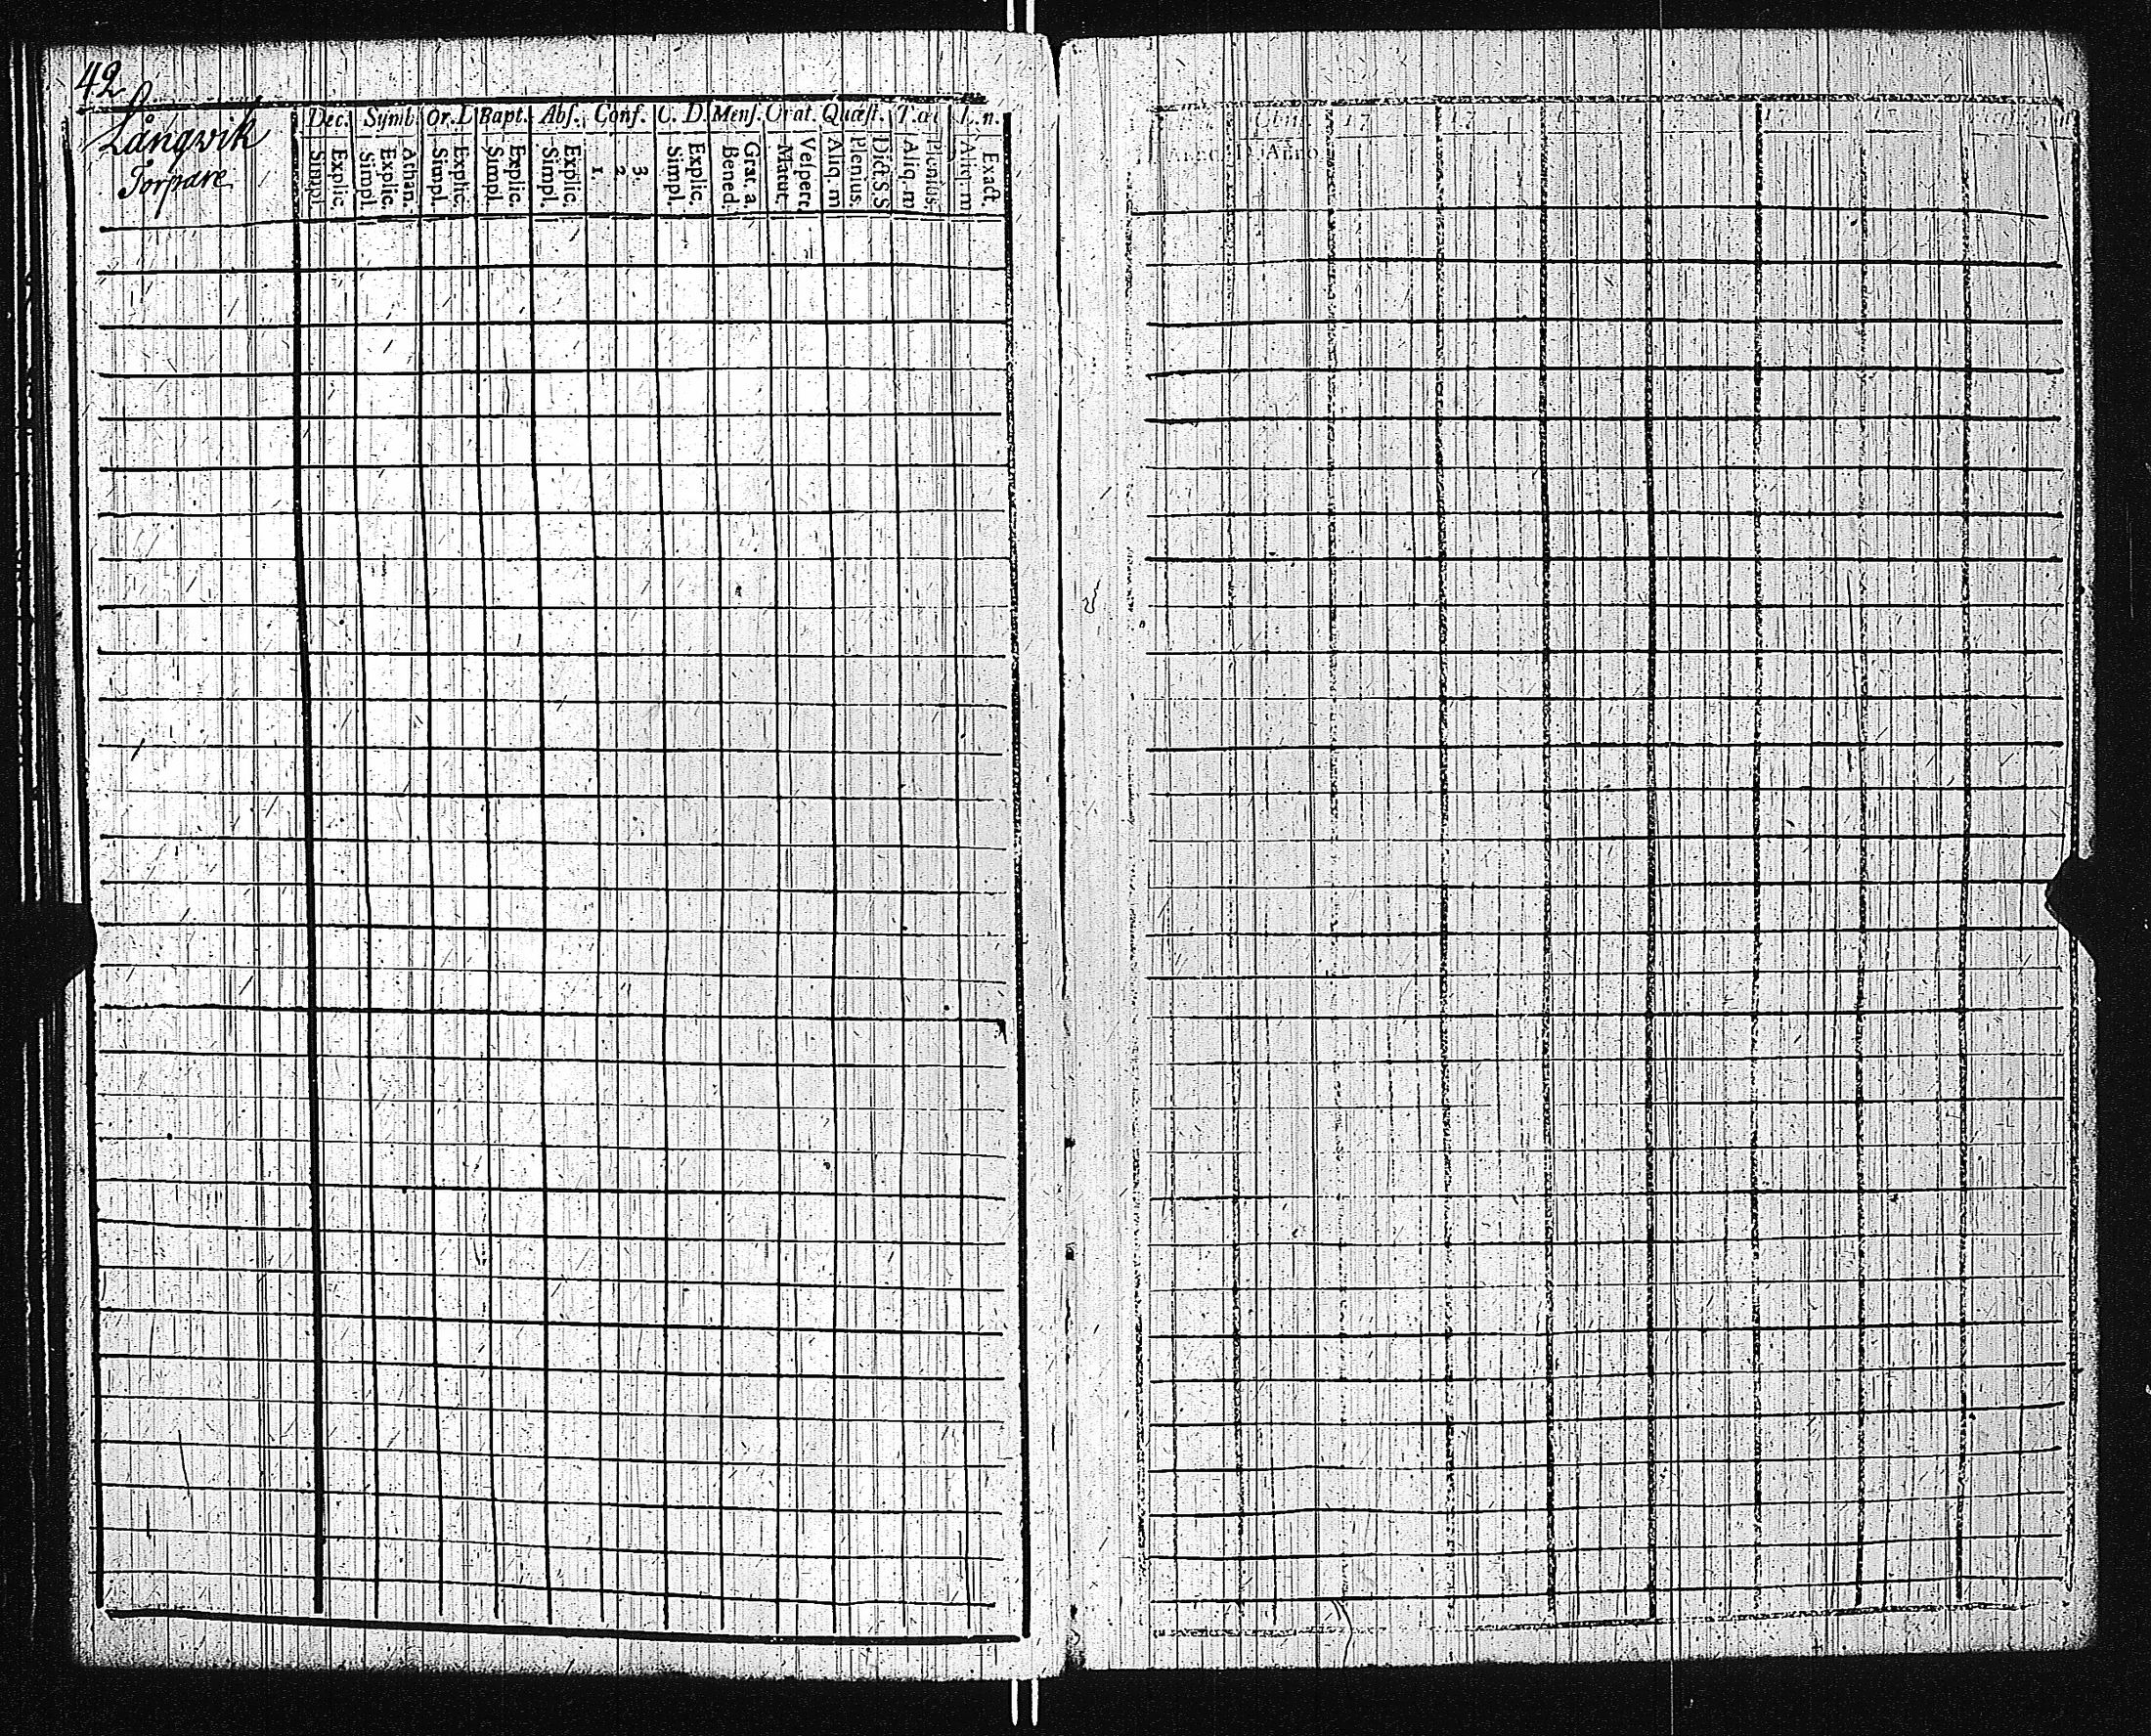 42
Långvik
Torpare
Dec. Symb. Or. D Bapt. Abs. Conf. C. D. Mens. Orat. Quæst.
Simpl. Explic. Simpl. Explic. Athan. Simpl. Explic. Simpl. Explic. Simpl. Explic. 1. 2. 3. Simpl. Explic. Bened. Grat. a. Matut. Vespert. Aliq. m Plenius. Dict. S. S Aliq. m Plenius. Aliq. m Exact.
17 17 17 17 17
Anno